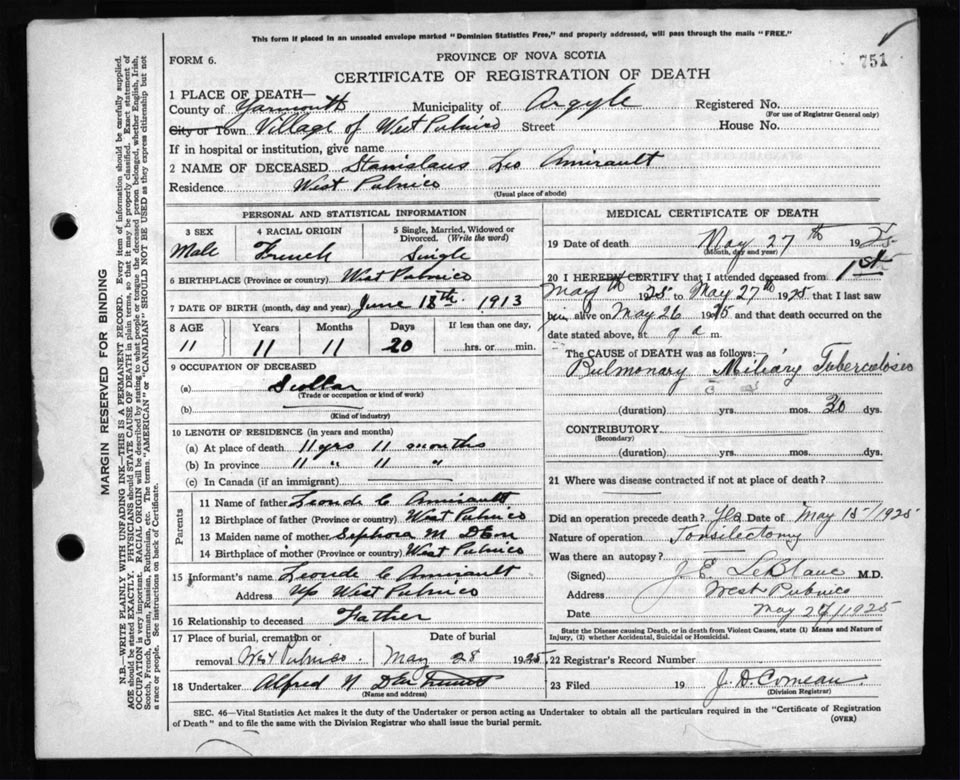 This form if placed in an unsealed envelope marked "Dominion Statistics Free," and properly addressed, will pass through the mails "FREE."
FORM 6.
PROVINCE OF NOVA SCOTIA
751
CERTIFICATE OF REGISTRATION OF DEATH
1 PLACE OF DEATH—
County of Yarmouth Municipality of Argyle Registered No.
(For use of Registrar General only)
City or Town Village of West Pubnico Street House No.
If in hospital or institution, give name
2 NAME OF DECEASED Stanislaus Leo Amirault
Residence West Pubnico
(Usual place of abode)
PERSONAL AND STATISTICAL INFORMATION
3 SEX 4 RACIAL ORIGIN 5 Single, Married, Widowed or Divorced. (Write the word)
Male French Single
6 BIRTHPLACE (Province or country) West Pubnico
7 DATE OF BIRTH (month, day and year) June 18th. 1913
8 AGE Years Months Days If less than one day,
11 11 11 20 hrs. or min.
9 OCCUPATION OF DECEASED
(a) Scollar
(Trade or occupation or kind of work)
(b)
(Kind of industry)
10 LENGTH OF RESIDENCE (in years and months)
(a) At place of death 11 yrs 11 months
(b) In province 11 " 11 "
(c) In Canada (if an immigrant)
Parents
11 Name of father Leonde C Amirault
12 Birthplace of father (Province or country) West Pubnico
13 Maiden name of mother Sephora M
14 Birthplace of mother (Province or country) West Pubnico
15 Informant's name Leonde C Amirault
Address Up West Pubnico
16 Relationship to deceased Father
17 Place of burial, cremation or removal West Pubnico. Date of burial May 28 1925
18 Undertaker Alfred N
(Name and address)
MEDICAL CERTIFICATE OF DEATH
19 Date of death May 27th 1925
(Month, day and year)
20 I HEREBY CERTIFY that I attended deceased from 1st
May 1925 to May 27th 1925 that I last saw
him alive on May 26 1925 and that death occurred on the
date stated above, at 9 a m.
The CAUSE of DEATH was as follows:
Pulmonary Miliary Tuberculosis
(duration) yrs. mos. 30 dys.
CONTRIBUTORY
(Secondary)
(duration) yrs. mos. dys.
21 Where was disease contracted if not at place of death?
Did an operation precede death? Yes Date of May 15/1925
Nature of operation Tonsilectomy
Was there an autopsy?
(Signed) J E. LeBlanc M.D.
Address West Pubnico
Date May 27/1925
State the Disease causing Death, or in death from Violent Causes, state (1) Means and Nature of Injury, (2) whether Accidental, Suicidal or Homicidal.
22 Registrar's Record Number
23 Filed 19 J. D. Comeau.
(Division Registrar)
SEC. 46—Vital Statistics Act makes it the duty of the Undertaker or person acting as Undertaker to obtain all the particulars required in the "Certificate of Registration of Death" and to file the same with the Division Registrar who shall issue the burial permit.
(OVER)
MARGIN RESERVED FOR BINDING
N.B.—WRITE PLAINLY WITH UNFADING INK—THIS IS A PERMANENT RECORD. Every item of information should be carefully supplied.
AGE should be stated EXACTLY. PHYSICIANS should STATE CAUSE OF DEATH in plain terms, so that it may be properly classified. Exact statement of
OCCUPATION is very important. RACIAL ORIGIN will be described by stating to what people or tongue the deceased person belonged, whether English, Irish,
Scotch, French, German, Russian, Ruthenian, etc. The terms "AMERICAN" or "CANADIAN" SHOULD NOT BE USED as they express citizenship but not
a race or people. See instructions on back of Certificate.